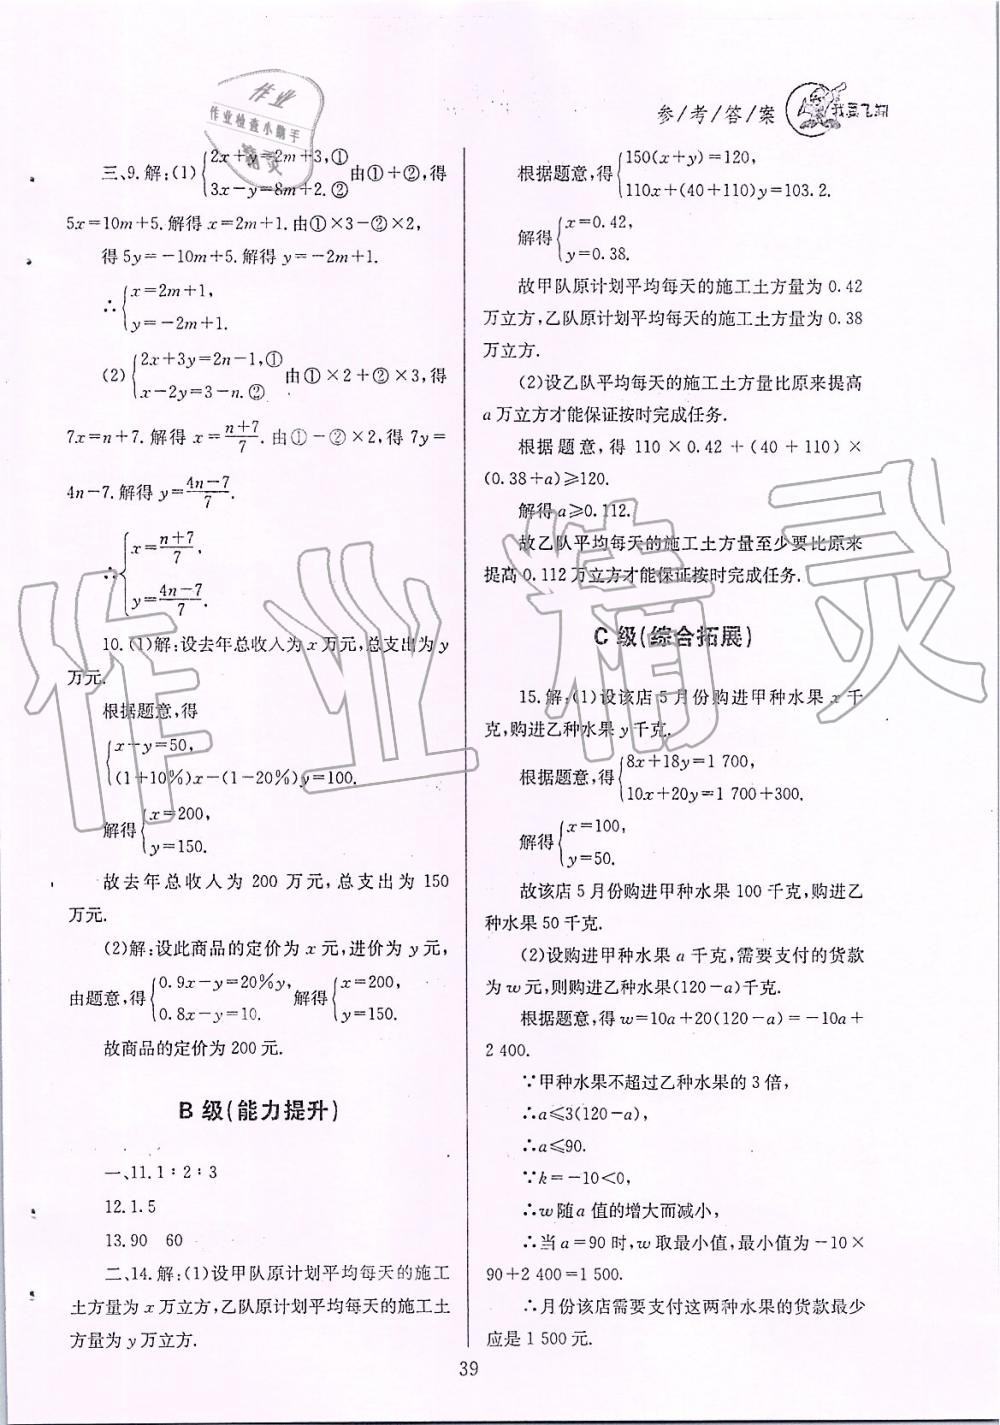 参/考/答/案
三、9.解:(1){2x+y=2m+3,① 3x-y=8m+2.② 由①+②,得
5x=10m+5.解得 x=2m+1.由①×3-②×2,
得 5y=-10m+5.解得 y=-2m+1.
∴{x=2m+1,
y=-2m+1.
(2){2x+3y=2n-1,① x-2y=3-n.② 由①×2+②×3,得
7x=n+7.解得 x=(n+7)/7.由①-②×2,得 7y=
4n-7.解得 y=(4n-7)/7.
∴{x=(n+7)/7,
y=(4n-7)/7.
10.(1)解:设去年总收人为 x 万元,总支出为 y
万元.
根据题意,得
{x-y=50,
(1+10%)x-(1-20%)y=100.
解得{x=200,
y=150.
故去年总收人为 200 万元,总支出为 150
万元.
(2)解:设此商品的定价为 x 元,进价为 y 元,
由题意,得{0.9x-y=20%y, 0.8x-y=10. 解得{x=200, y=150.
故商品的定价为 200 元.
B 级(能力提升)
一、11.1∶2∶3
12.1.5
13.90 60
二、14.解:(1)设甲队原计划平均每天的施工
土方量为 x 万立方,乙队原计划平均每天的施工土
方量为 y 万立方.
根据题意,得{150(x+y)=120,
110x+(40+110)y=103.2.
解得{x=0.42,
y=0.38.
故甲队原计划平均每天的施工土方量为 0.42
万立方,乙队原计划平均每天的施工土方量为 0.38
万立方.
(2)设乙队平均每天的施工土方量比原来提高
a 万立方才能保证按时完成任务.
根据题意,得 110×0.42+(40+110)×
(0.38+a)≥120.
解得 a≥0.112.
故乙队平均每天的施工土方量至少要比原来
提高 0.112 万立方才能保证按时完成任务.
C 级(综合拓展)
15.解:(1)设该店 5 月份购进甲种水果 x 千
克,购进乙种水果 y 千克.
根据题意,得{8x+18y=1 700,
10x+20y=1 700+300.
解得{x=100,
y=50.
故该店 5 月份购进甲种水果 100 千克,购进乙
种水果 50 千克.
(2)设购进甲种水果 a 千克,需要支付的货款
为 w 元,则购进乙种水果(120-a)千克.
根据题意,得 w=10a+20(120-a)=-10a+
2 400.
∵甲种水果不超过乙种水果的 3 倍,
∴a≤3(120-a),
∴a≤90.
∵k=-10<0,
∴w 随 a 值的增大而减小,
∴当 a=90 时,w 取最小值,最小值为-10×
90+2 400=1 500.
∴月份该店需要支付这两种水果的货款最少
应是 1 500 元.
39
作业
作业检查小能手
精灵
作业精灵